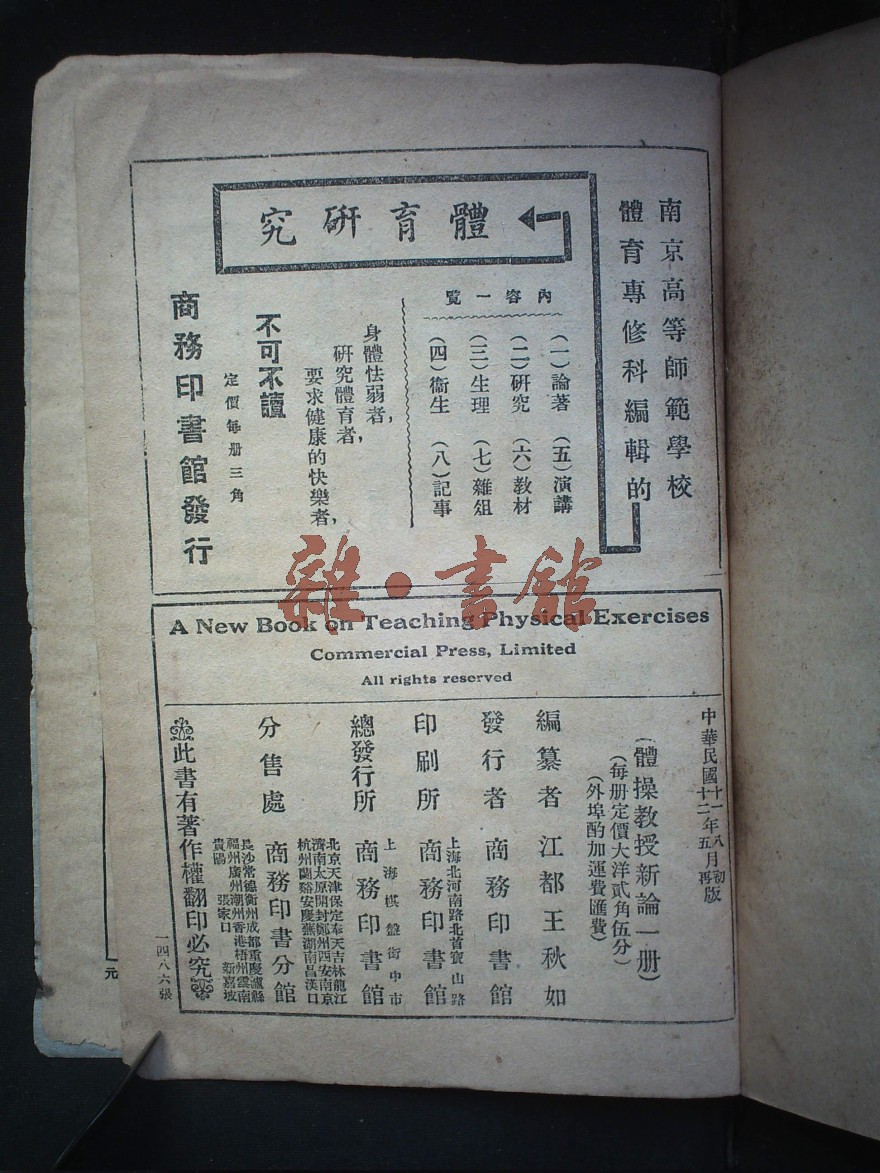 南京高等師範學校
體育專修科編輯的
體育研究
內容一覽
(一)論著 (五)演講
(二)研究 (六)教材
(三)生理 (七)雜俎
(四)衞生 (八)記事
身體怯弱者,
研究體育者,
要求健康的快樂者,
不可不讀
定價每册三角
商務印書館發行
雜·書館
A New Book on Teaching Physical Exercises
Commercial Press, Limited
All rights reserved
中華民國十一年八月初版
十二年五月再版
(體操教授新論一册)
(每册定價大洋貳角伍分)
(外埠酌加運費匯費)
編纂者 江都王秋如
發行者 商務印書館
上海北河南路北首寶山路
印刷所 商務印書館
上海棋盤街中市
總發行所 商務印書館
北京天津保定奉天吉林龍江
濟南太原開封鄭州西安南京
杭州蘭谿安慶蕪湖南昌漢口
分售處 商務印書分館
長沙常德衡州成都重慶瀘縣
福州廣州潮州香港梧州雲南
貴陽 張家口 新嘉坡
此書有著作權翻印必究
一四八六張
元